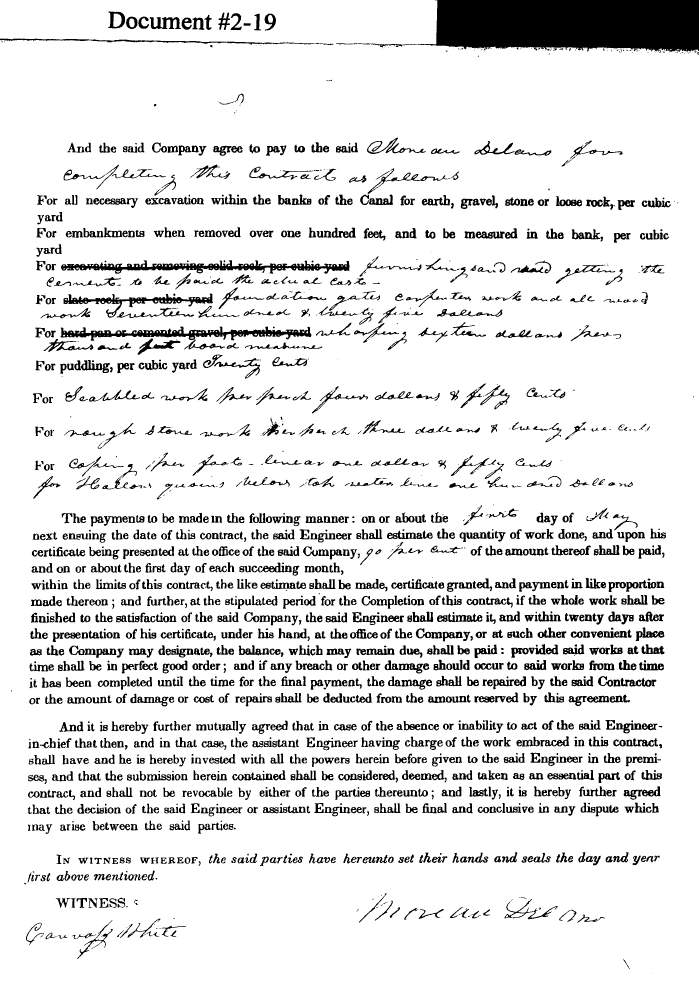 Document #2-19
And the said Company agree to pay to the said Moreau Delano for
completing this Contract as follows
For all necessary excavation within the banks of the Canal for earth, gravel, stone or loose rock, per cubic
yard
For embankments when removed over one hundred feet, and to be measured in the bank, per cubic
yard
For excavating and removing solid rock, per cubic yard furnishing sand and getting the
cement to be paid the actual cost -
For slate rock, per cubic yard foundation gates carpenter work and all wood
work Seventeen hundred & twenty five Dollars
For hard pan or cemented gravel, per cubic yard wharfing Sixteen dollars per
thousand feet board measure
For puddling, per cubic yard Twenty Cents
For Scabbled work per perch four dollars & fifty Cents
For rough Stone work per perch three dollars & twenty five cents
For Coping per foot - linear one dollar & fifty Cents
for Hollow quoins below top water line one hundred Dollars
The payments to be made in the following manner: on or about the first day of May
next ensuing the date of this contract, the said Engineer shall estimate the quantity of work done, and upon his
certificate being presented at the office of the said Company, 90 per cent of the amount thereof shall be paid,
and on or about the first day of each succeeding month,
within the limits of this contract, the like estimate shall be made, certificate granted, and payment in like proportion
made thereon; and further, at the stipulated period for the Completion of this contract, if the whole work shall be
finished to the satisfaction of the said Company, the said Engineer shall estimate it, and within twenty days after
the presentation of his certificate, under his hand, at the office of the Company, or at such other convenient place
as the Company may designate, the balance, which may remain due, shall be paid: provided said works at that
time shall be in perfect good order; and if any breach or other damage should occur to said works from the time
it has been completed until the time for the final payment, the damage shall be repaired by the said Contractor
or the amount of damage or cost of repairs shall be deducted from the amount reserved by this agreement.
And it is hereby further mutually agreed that in case of the absence or inability to act of the said Engineer-
in-chief that then, and in that case, the assistant Engineer having charge of the work embraced in this contract,
shall have and he is hereby invested with all the powers herein before given to the said Engineer in the premi-
ses, and that the submission herein contained shall be considered, deemed, and taken as an essential part of this
contract, and shall not be revocable by either of the parties thereunto; and lastly, it is hereby further agreed
that the decision of the said Engineer or assistant Engineer, shall be final and conclusive in any dispute which
may arise between the said parties.
IN WITNESS WHEREOF, the said parties have hereunto set their hands and seals the day and year
first above mentioned.
WITNESS.
Moreau Delano
White